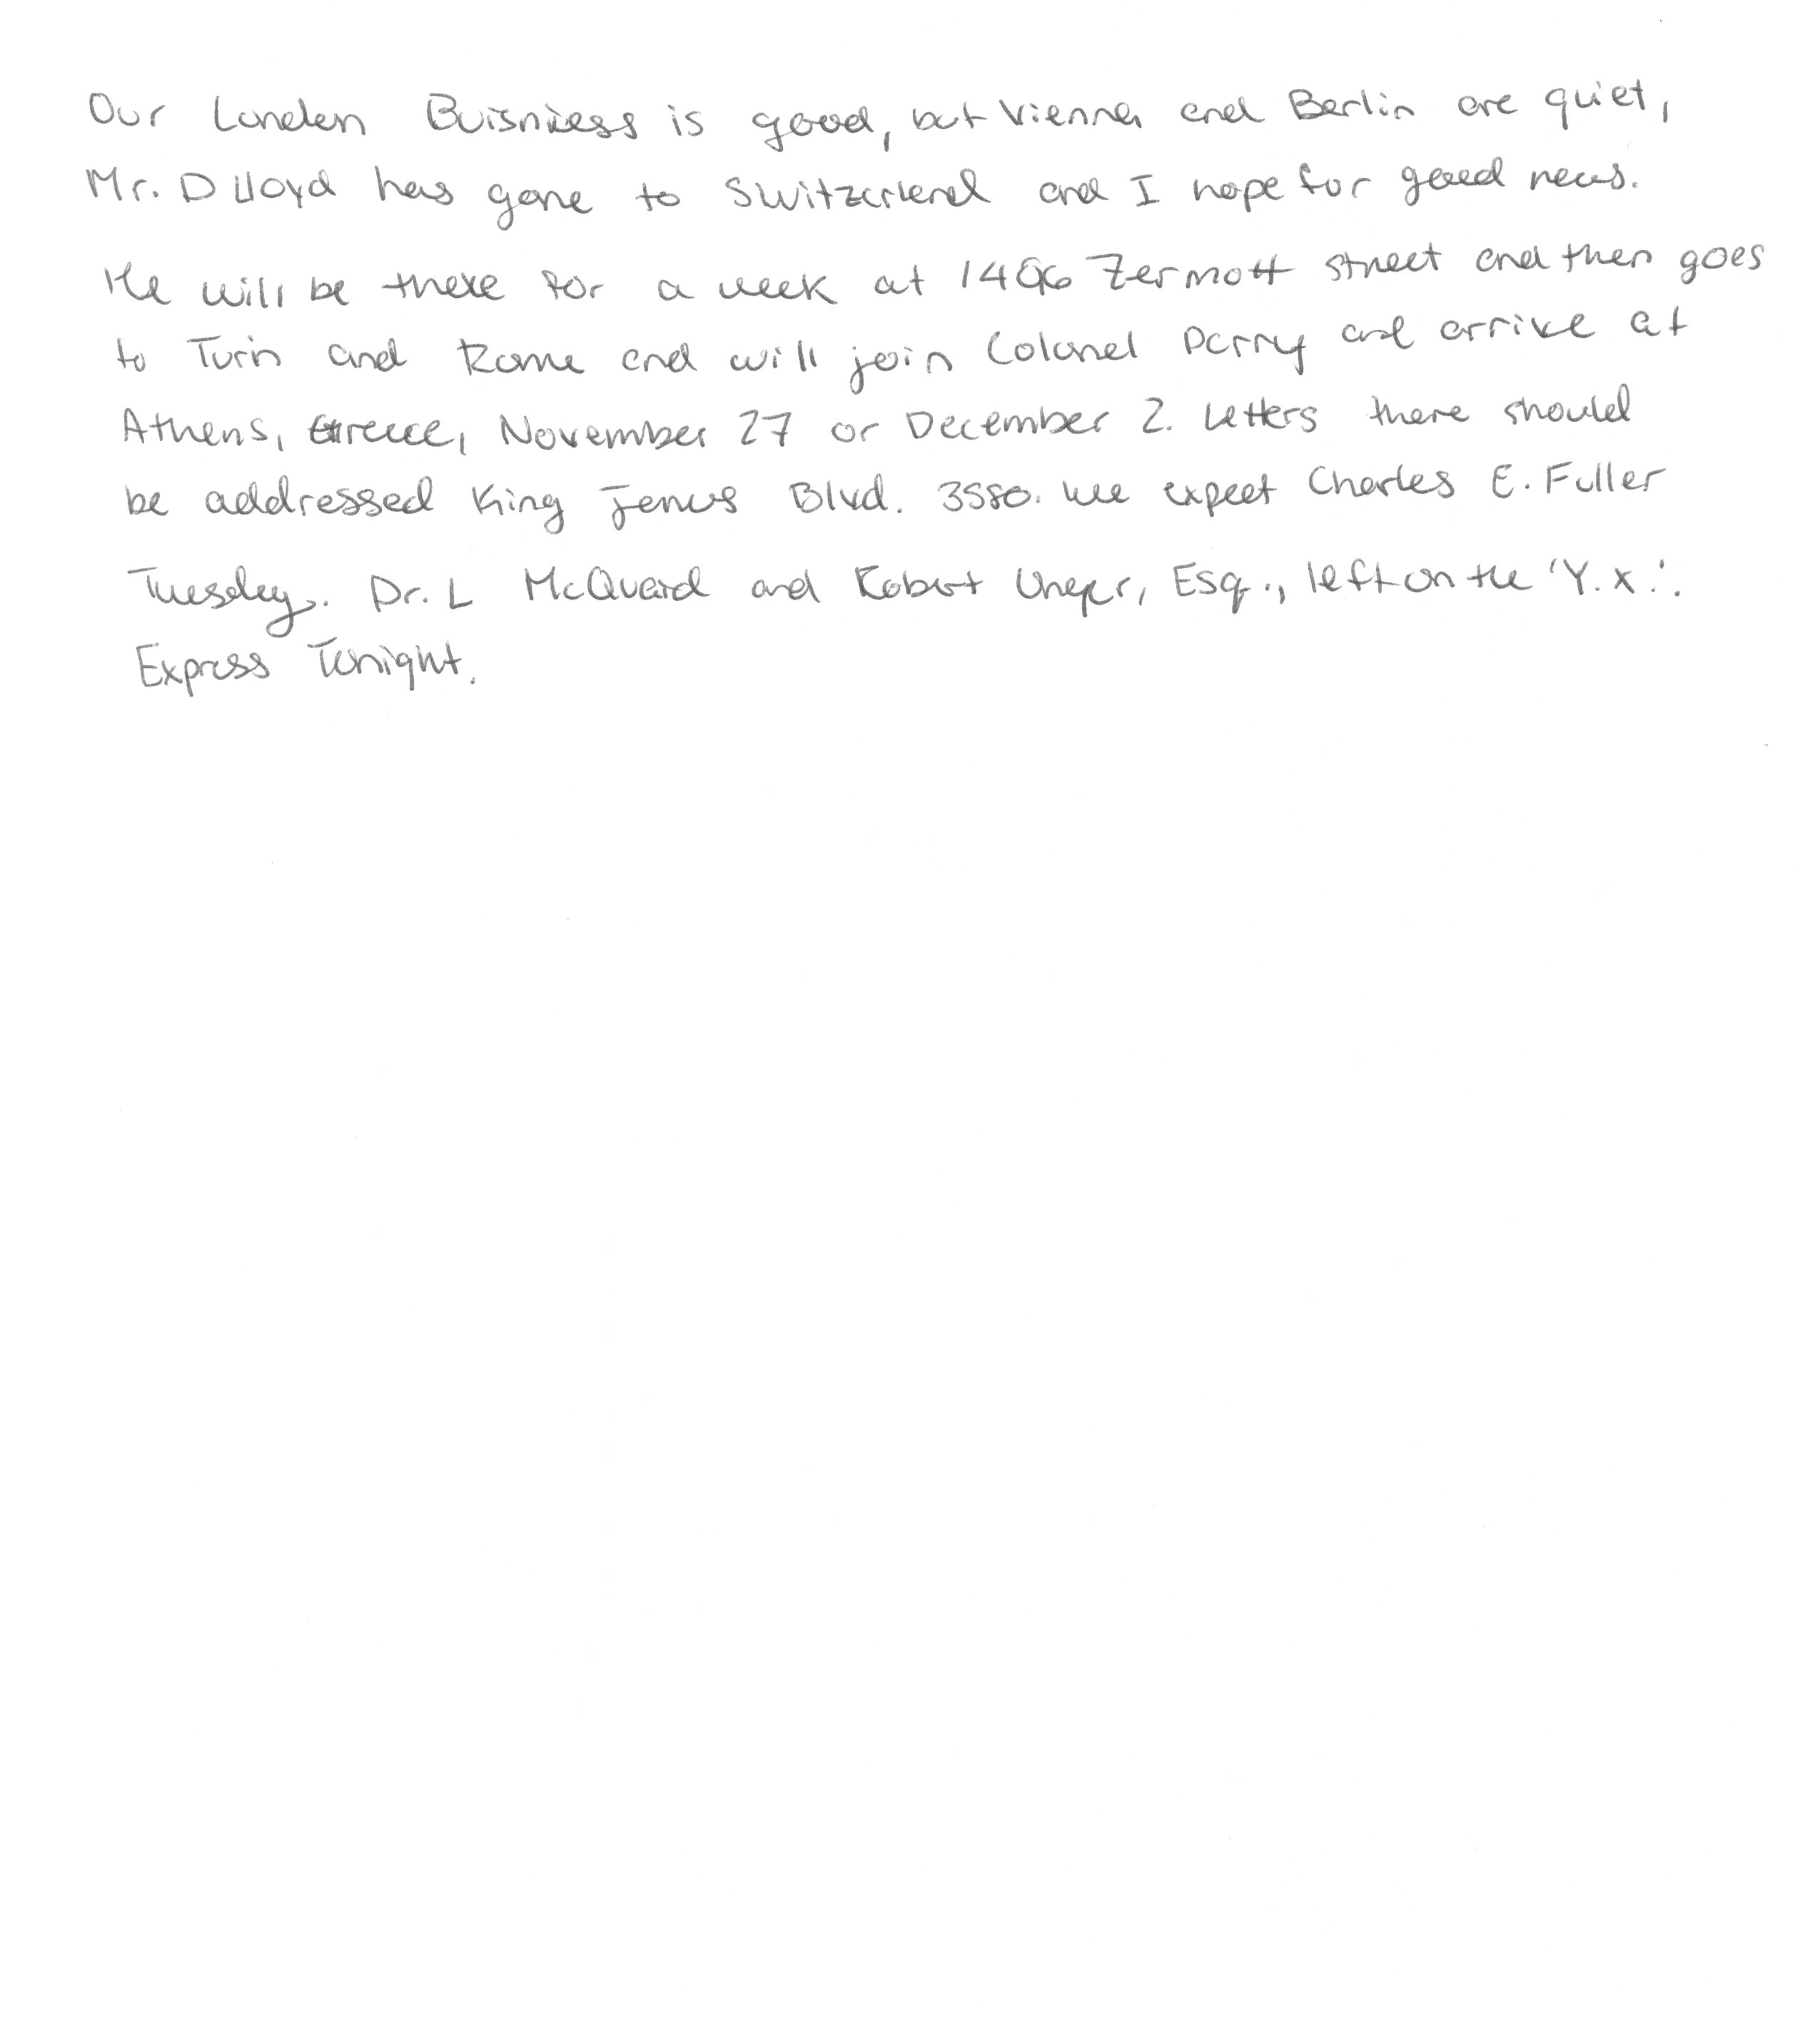 Our London Buisniess is good, but Vienna and Berlin are quiet,
Mr. D Lloyd has gone to Switzerland and I hope for good news.
He will be there for a week at 1496 Zermott street and then goes
to Turin and Rome and will join Colonel Parry and arrive at
Athens, Greece, November 27 or December 2. Letters there should
be addressed King James Blvd. 3580. We expect Charles E. Fuller
Tuesday. Dr. L McQuaid and Robert Unger, Esq., left on the 'Y.X.'.
Express Tonight.